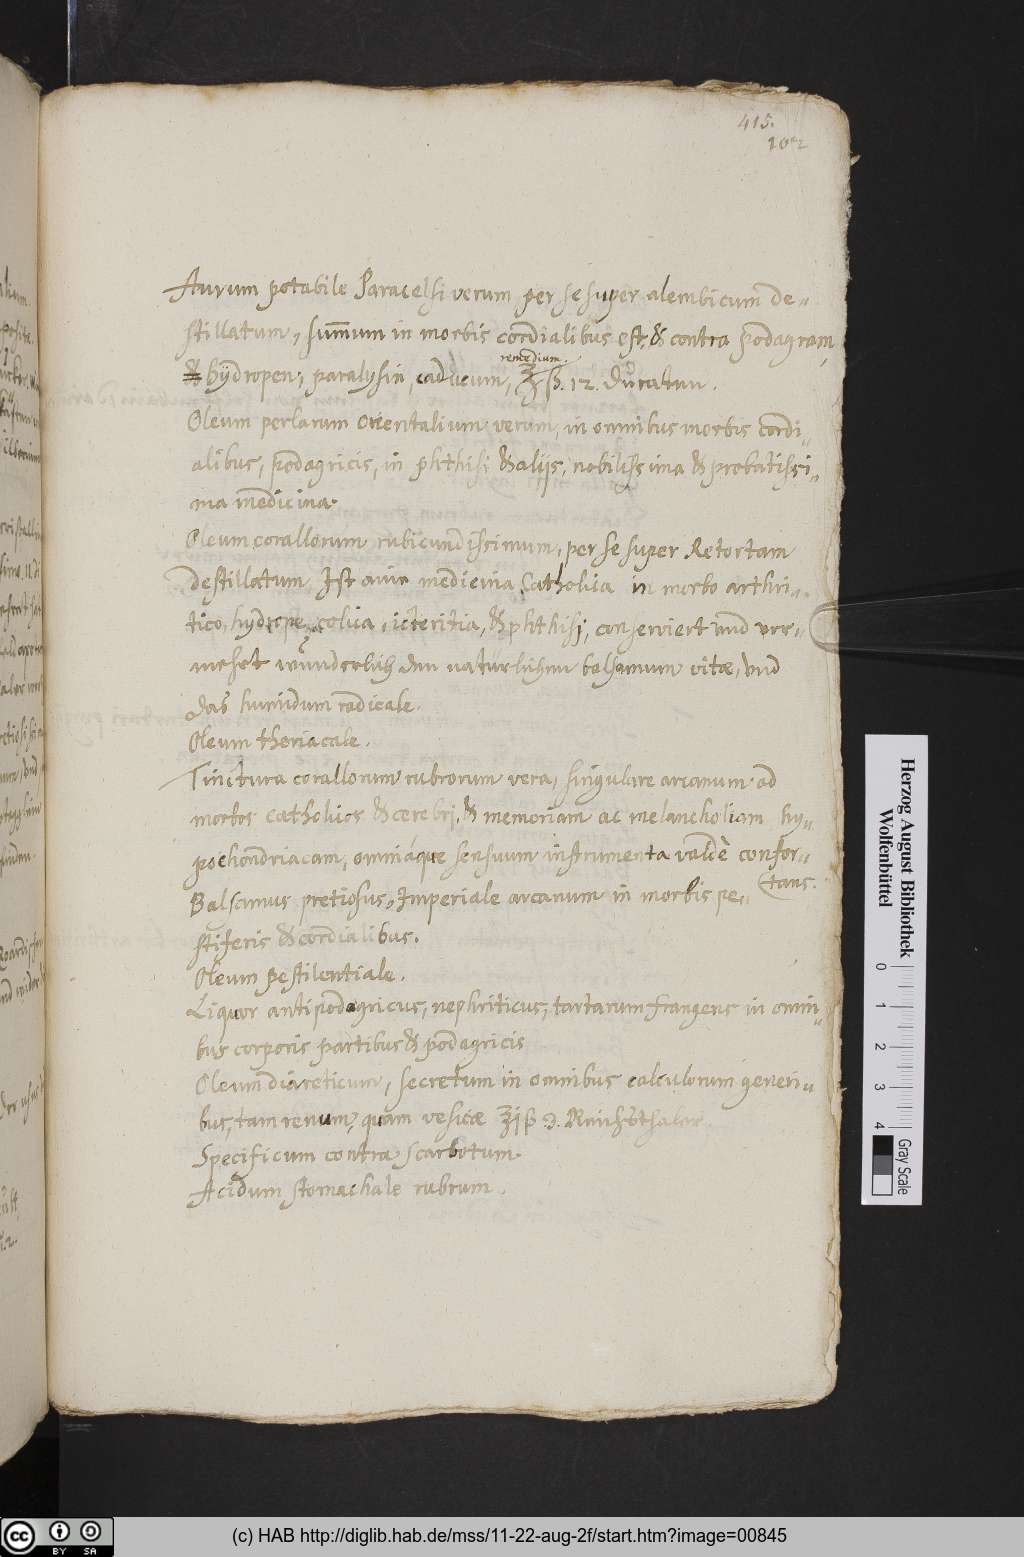 415.
102
Aurum potabile Paracelsi verum per se super alembicum de-
stillatum, sum̄um in morbis cordialibus est, & contra podagram,
remedium.
& hÿdropen, paralysin caducum, ʒ ß. 12. Ducaten.
Oleum perlarum Orientalium verum, in omnibus morbis cordi-
alibus, podagricis, in phthisi & alijs, nobilissima & probatissi-
ma medicina.
Oleum corallorum rubicundissimum, per se super Retortam
destillatum, Ist eine medicina Catholica in morbo arthri-
tico, hydrope, colica, icteritia, & phthisi, conserviert und ver-
mehret wunderlich den natürlichen balsamum vitæ, und
das humidum radicale.
Oleum theriacale.
Tinctura corallorum rubrorum vera, singulare arcanum ad
morbos catholicos & cerebri, & memoriam ac melancholiam hy-
pochondriacam, omniáque sensuum instrumenta valdè confor-
tans.
Balsamus pretiosus, Imperiale arcanum in morbis pe-
stiferis & cordialibus.
Oleum pestilentiale.
Liquor antipodagricus, nephriticus, tartarum frangens in omni-
bus corporis partibus & podagricis
Oleum diureticum, secretum in omnibus calculorum generi
bus, tam renum, quam vesicæ ʒiß 2. Reichsthaler
Specificum contra scarbotum.
Acidum stomachale rubrum.
Herzog August Bibliothek
Wolfenbüttel
0 1 2 3 4
Gray Scale
cc BY SA
(c) HAB http://diglib.hab.de/mss/11-22-aug-2f/start.htm?image=00845